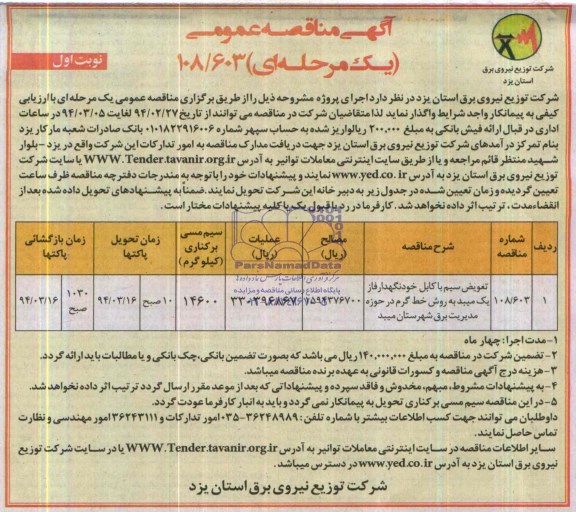 آگهی مناقصه عمومی
(یک مرحله‌ای) ۱۰۸/۶۰۳
نوبت اول
شرکت توزیع نیروی برق
استان یزد
شرکت توزیع نیروی برق استان یزد در نظر دارد اجرای پروژه مشروحه ذیل را از طریق برگزاری مناقصه عمومی یک مرحله ای با ارزیابی
کیفی به پیمانکار واجد شرایط واگذار نماید لذا متقاضیان شرکت در مناقصه می توانند از تاریخ ۹۴/۰۲/۲۷ لغایت ۹۴/۰۳/۰۵ در ساعات
اداری در قبال ارائه فیش بانکی به مبلغ ۲۰۰,۰۰۰ ریال واریز شده به حساب سپهر شماره ۰۱۰۱۸۲۲۹۱۶۰۰۶ بانک صادرات شعبه مارکار یزد
بنام تمرکز درآمدهای شرکت توزیع نیروی برق استان یزد جهت دریافت مدارک مناقصه به امور تدارکات این شرکت واقع در یزد - بلوار
شهید منتظر قائم مراجعه و یا از طریق سایت اینترنتی معاملات توانیر به آدرس WWW.Tender.tavanir.org.ir یا سایت شرکت
توزیع نیروی برق استان یزد به آدرس www.yed.co.ir نمایند و پیشنهادات خود را با توجه به مندرجات دفترچه مناقصه ظرف ساعت
تعیین گردیده و زمان تعیین شده در جدول زیر به دبیرخانه این شرکت تحویل نمایند. ضمناً به پیشنهادهای تحویل داده شده بعد از
انقضاء مدت، ترتیب اثر داده نخواهد شد. کارفرما در رد یا قبول یک یا کلیه پیشنهادات مختار است.
ردیف	شماره مناقصه	شرح مناقصه	مصالح (ریال)	عملیات (ریال)	سیم مسی برکناری (کیلو گرم)	زمان تحویل پاکتها	زمان بازگشائی پاکتها
۱	۱۰۸/۶۰۳	تعویض سیم با کابل خودنگهدار فاز یک میبد به روش خط گرم در حوزه مدیریت برق شهرستان میبد	۱۴۶۰۰	۱۰ صبح ۹۴/۰۳/۱۶	۱۰:۳۰ صبح ۹۴/۰۳/۱۶
ParsNamadData
پایگاه اطلاع رسانی مناقصه و مزایده
۱-مدت اجرا: چهار ماه
۲- تضمین شرکت در مناقصه به مبلغ ۱۴۰,۰۰۰,۰۰۰ ریال می باشد که بصورت تضمین بانکی، چک بانکی و یا مطالبات باید ارائه گردد.
۳-هزینه درج آگهی مناقصه و کسورات قانونی به عهده برنده مناقصه میباشد.
۴- به پیشنهادات مشروط، مبهم، مخدوش و فاقد سپرده و پیشنهاداتی که بعد از موعد مقرر ارسال گردد ترتیب اثر داده نخواهد شد.
۵- در این مناقصه سیم مسی برکناری تحویل به پیمانکار نمی گردد و باید به انبار کارفرما عودت گردد.
داوطلبان می توانند جهت کسب اطلاعات بیشتر با شماره تلفن: ۳۶۲۴۸۹۸۹-۰۳۵ امور تدارکات و ۳۶۲۴۳۱۱۱ امور مهندسی و نظارت
تماس حاصل نمایند.
سایر اطلاعات مناقصه در سایت اینترنتی معاملات توانیر به آدرس WWW.Tender.tavanir.org.ir یا در سایت شرکت توزیع
نیروی برق استان یزد به آدرس www.yed.co.ir در دسترس میباشد.
شرکت توزیع نیروی برق استان یزد